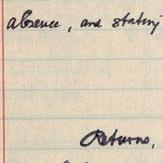 absence, and stating
Returns,